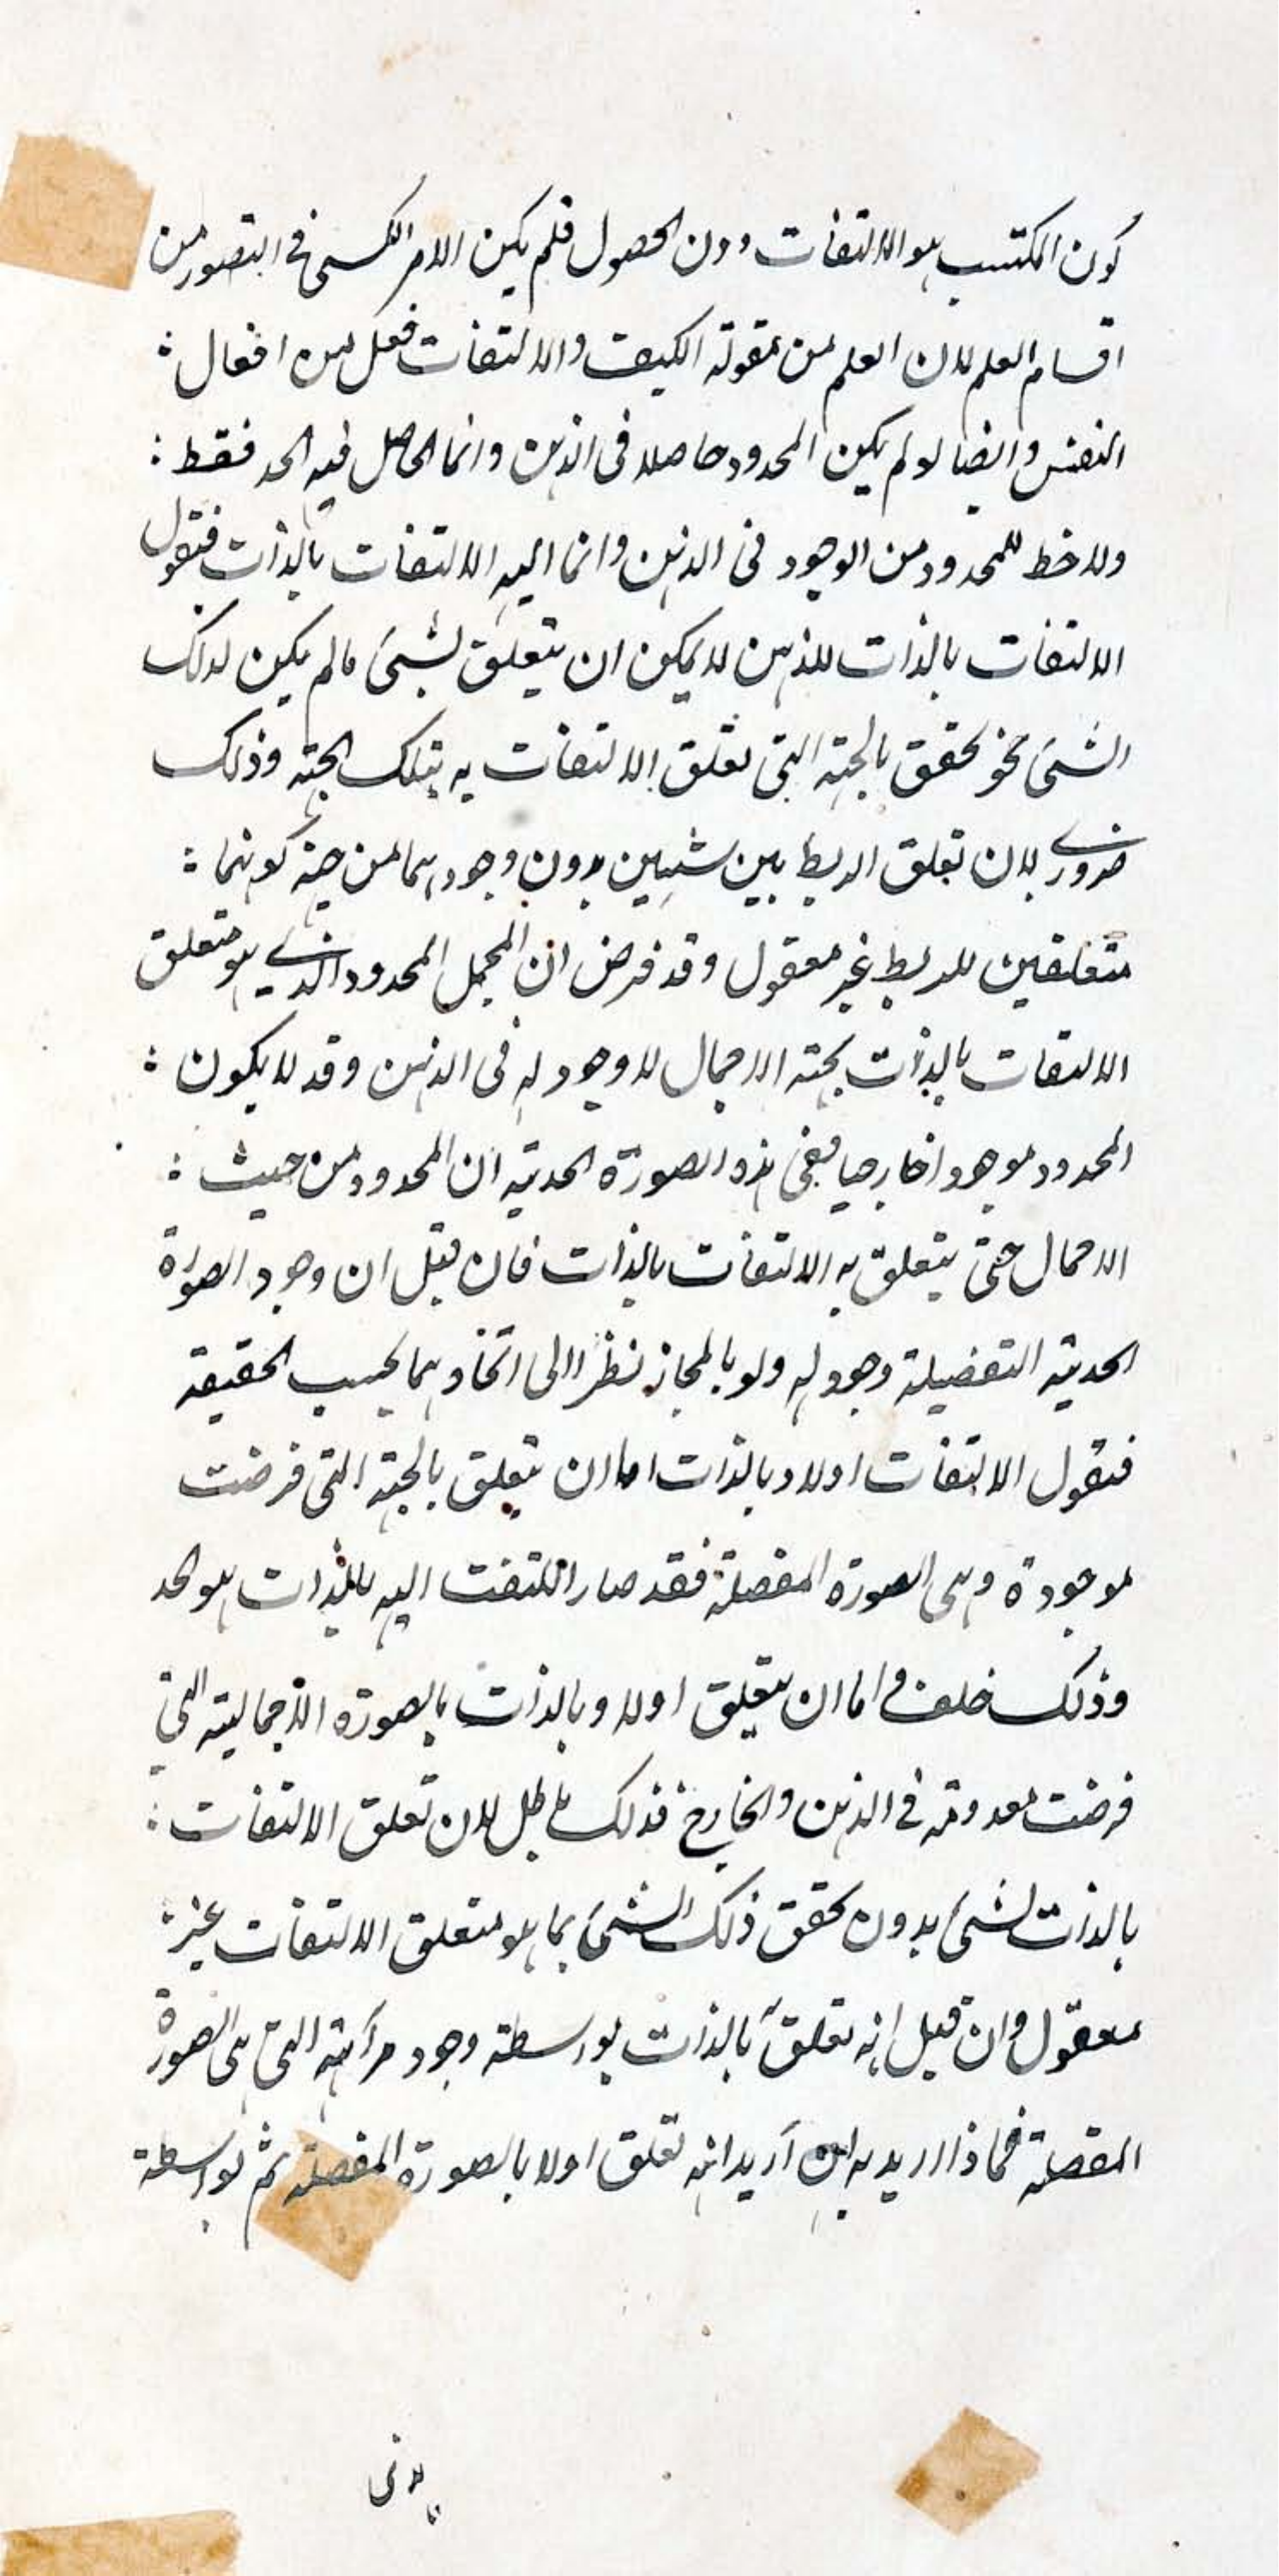 كون المكتسب هو الالتفات دون الحصول فلم يكن الامر الكسبي في التصور من
اقسام العلم لان العلم من مقولة الكيف والالتفات فعل من افعال :
النفس وايضا لو لم يكن المحدود حاصلا في الذهن وانما الحاصل فيه الحد فقط :
ولا حظ للمحدود من الوجود في الذهن وانما اليه الالتفات بالذات فنقول
الالتفات بالذات للذهن لا يمكن ان يتعلق بشيء ما لم يكن لذلك
الشيء نحو تحقق بالجهة التي تعلق الالتفات به بتلك الجهة وذلك
ضروري لان تعلق الربط بين شيئين بدون وجودهما من جهة كونهما :
متعلقين للربط غير معقول وقد فرض ان المجمل المحدود الذي هو متعلق
الالتفات بالذات بجهة الاجمال لا وجود له في الذهن وقد لا يكون :
المحدود موجودا خارجيا ففي هذه الصورة الحدية ان المحدود من حيث :
الاجمال حتى يتعلق به الالتفات بالذات فان قيل ان وجود الصورة
الحدية التفضيلة وجود له ولو بالمجاز نظرا الى اتحادهما بحسب الحقيقة
فنقول الالتفات اولا وبالذات اما ان يتعلق بالجهة التي فرضت
موجودة وهي الصورة المفصلة فقد صار الملتفت اليه بالذات هو الحد
وذلك خلف واما ان يتعلق اولا وبالذات بالصورة الاجمالية التي
فرضت معدومة في الذهن والخارج فذلك باطل لان تعلق الالتفات :
بالذات لشيء بدون تحقق ذلك الشيء بما هو متعلق الالتفات غير :
معقول وان قيل انه تعلق بالذات بواسطة وجود مرآته التي هي الصورة
المفصلة فماذا اريد به ان اريد انه تعلق اولا بالصورة المفصلة ثم بواسطة